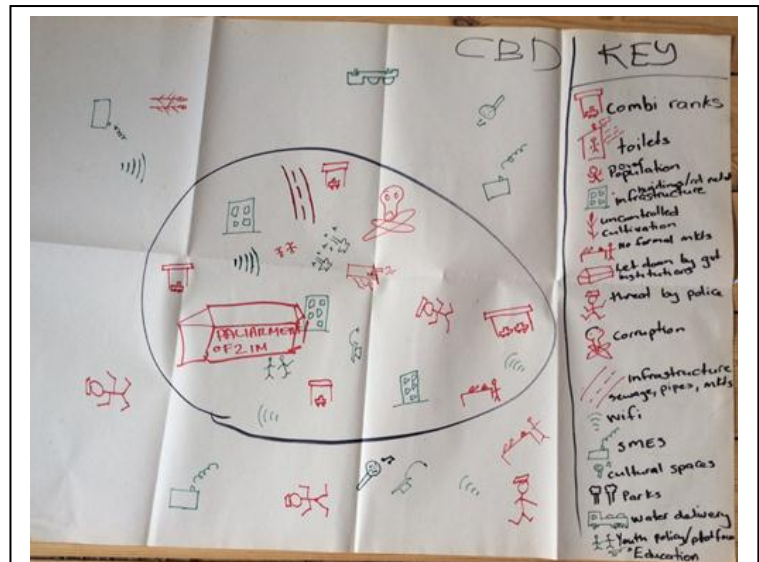 CBD
KEY
combi ranks
toilets
poor
Population
buildings/
infrastructure
uncontrolled
cultivation
no formal mkts
Let down by gvt
institutions
threat by police
corruption
infrastructure
sewage, pipes, mkts
wifi
SMES
cultural spaces
Parks
water delivery
Youth policy/platform
Education
PALIARMENT
OF ZIM